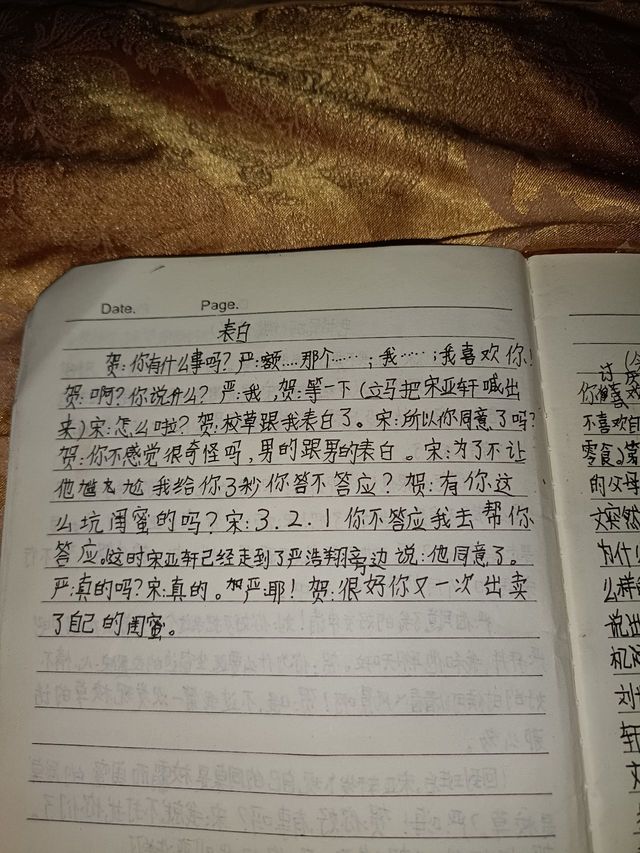 Date. Page.
表白
贺:你有什么事吗?严:额....那个……;我……;我喜欢你!
贺:啊?你说什么?严:我,贺:等一下(立马把宋亚轩喊出
来)宋:怎么啦?贺:校草跟我表白了。宋:所以你同意了吗?
贺:你不感觉很奇怪吗,男的跟男的表白。宋:为了不让
他尴尬我给你3秒你答不答应?贺:有你这
么坑闺蜜的吗?宋:3.2.1你不答应我去帮你
答应。这时宋亚轩已经走到了严浩翔旁边说:他同意了。
严:真的吗?宋:真的。严:耶!贺:很好你又一次出卖
了自己的闺蜜。
讨厌
你喜欢
不喜欢自
零食
的父母
文突然
为什
么样的
说出
机
刘
轩
文